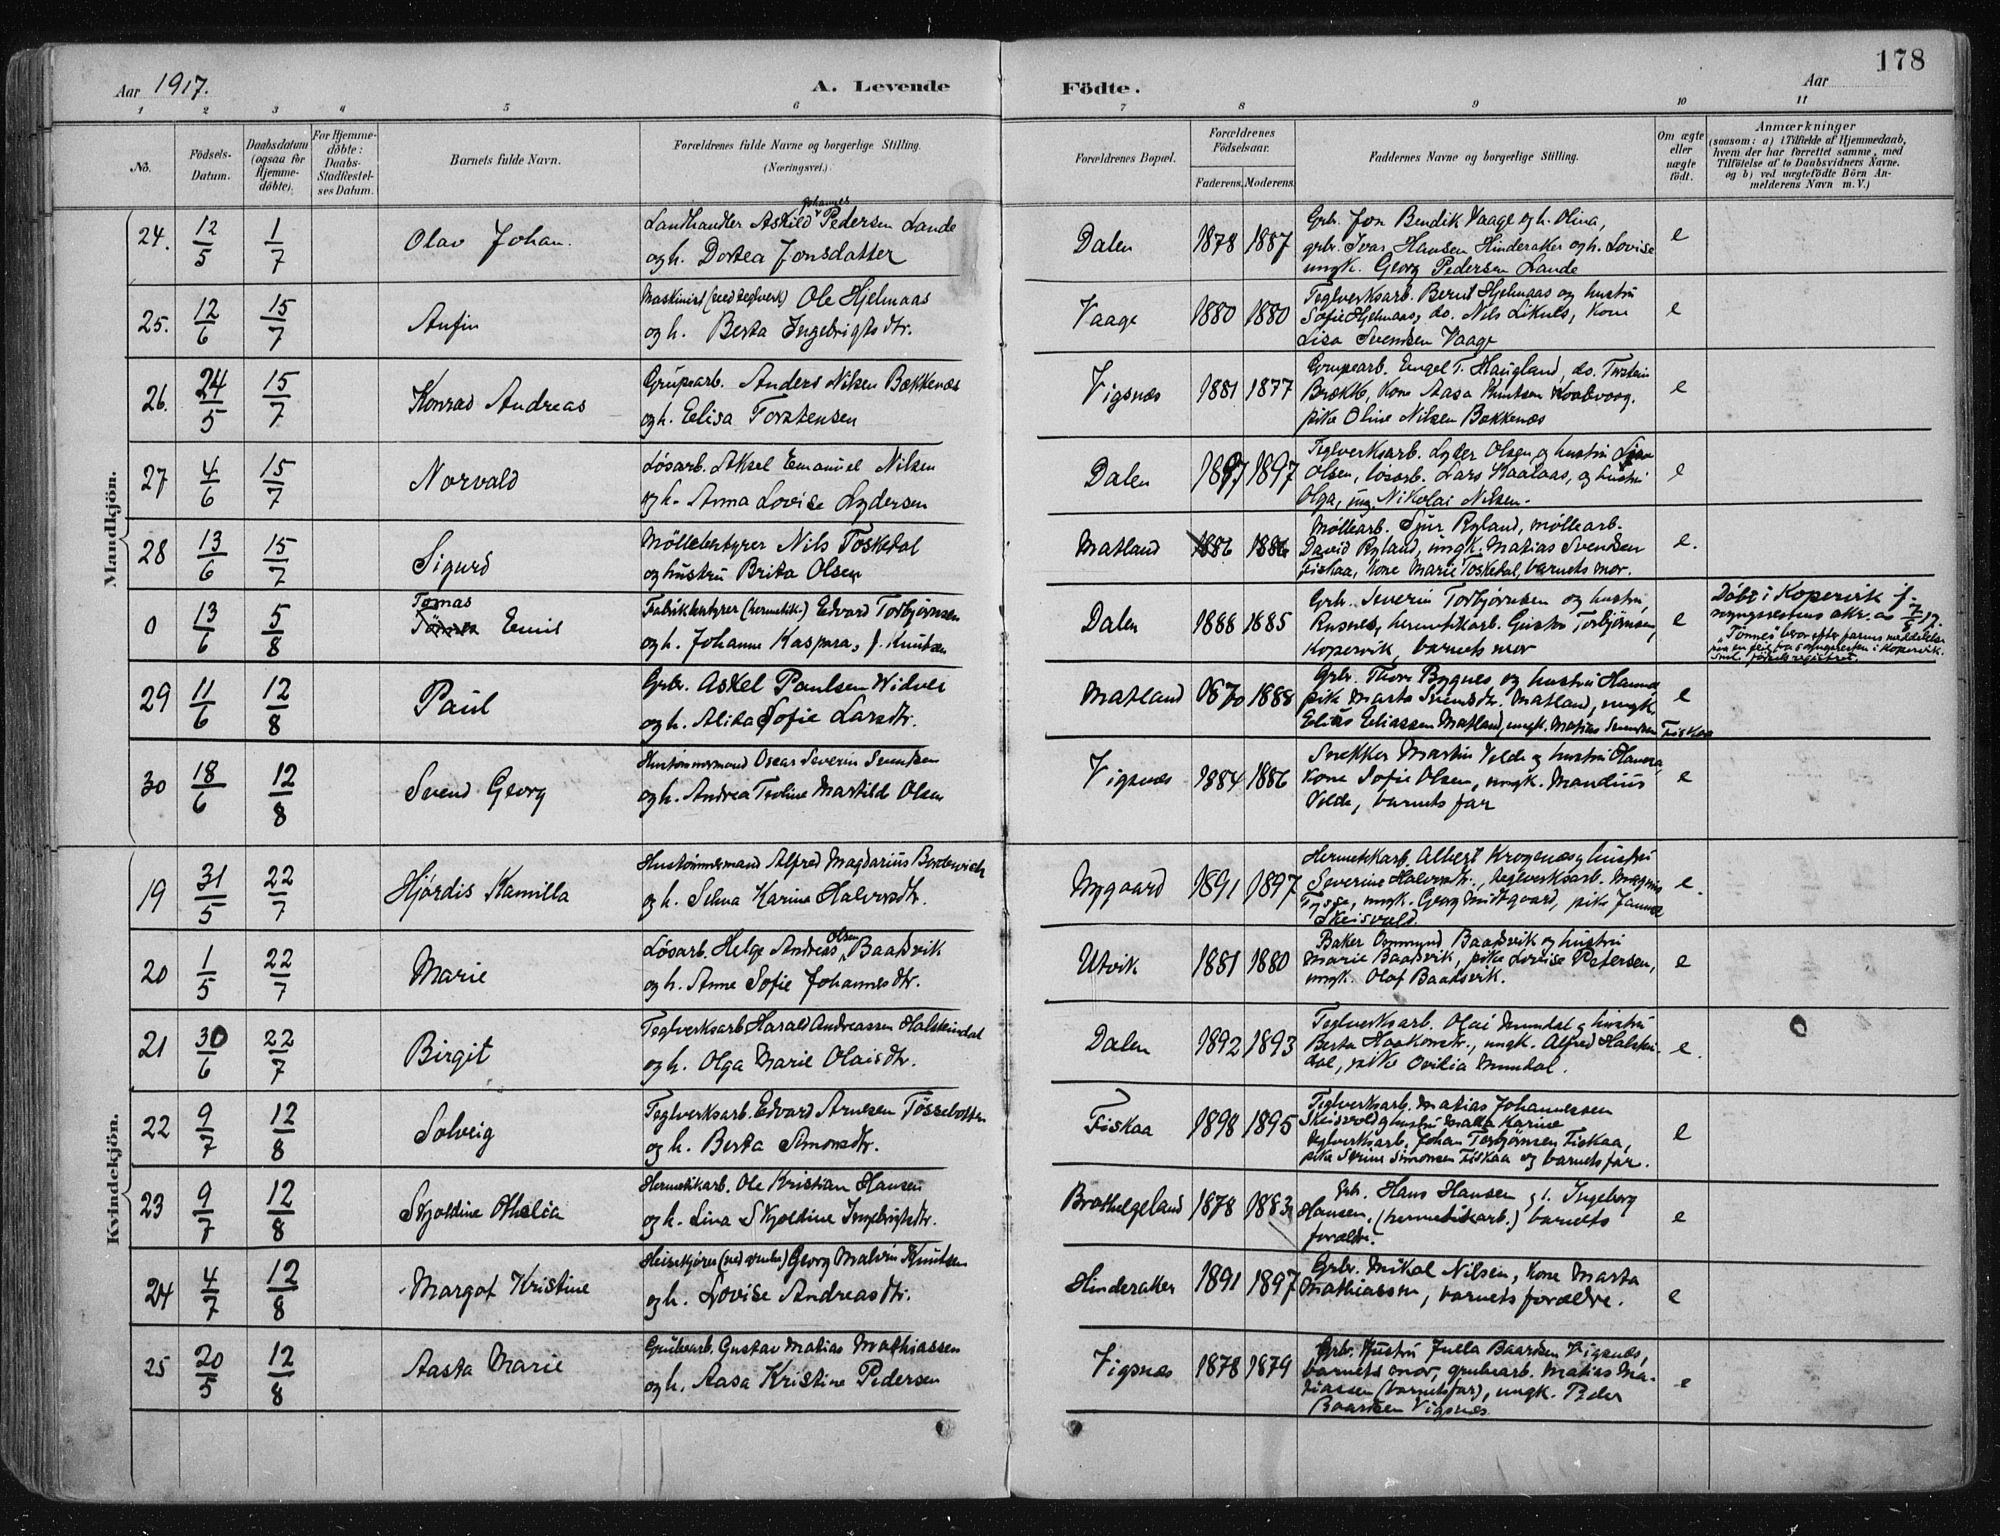 178
Aar 1917.
A. Levende
Födte.
Aar
1 2 3 4 5 6 7 8 9 10 11
No.
Födsels-Datum.
Daabsdatum (ogsaa for Hjemme-döbte).
For Hjemme-döbte: Daabs-Stadfæstel-ses Datum.
Barnets fulde Navn.
Forældrenes fulde Navne og borgerlige Stilling.
(Næringsvei.)
Forældrenes Bopæl.
Forældrenes Födselsaar.
Faderens. Moderens.
Faddernes Navne og borgerlige Stilling.
Om ægte eller uægte födt.
Anmærkninger
(saasom: a) i Tilfælde af Hjemmedaab,
hvem der har forrettet samme, med
Tilföielse af to Daabsvidners Navne.
og b) ved uægtefödte Börn An-
melderens Navn m. V.)
Mandkjön.
24. 12/5 1/7 Olav Johan.
Johannes
Landhandler Askild Pedersen Lande
og h. Dortea Jonsdatter
Dalen 1878 1887
Grb. Jon Bendik Vaage og h. Olina,
grbr. Ivar Hansen Hinderaker og h. Lovise
ungk. Georg Pedersen Lande
e
25. 12/6 15/7 Anfin
Maskinist (ved teglverk) Ole Hjelmaas
og h. Berta Ingebrigtsdtr.
Vaage 1880 1880
Teglverksarb. Bernt Hjelmaas og hustru
Sofie Hjelmaas, do. Nils Liknes, Kone
Lisa Svendsen Vaage
e
26. 24/5 15/7 Konrad Andreas
Grupearb. Anders Nilsen Bækkenæs
og h. Elisa Torstensen
Vigsnæs 1881 1877
Grupearb. Engel T. Haugland, do. Torstein
Brække, Kone Aasa Knutsen
pike Oline Nilsen Bækkenæs
e
27 4/6 15/7 Norvald
Løsarb. Aksel Emanuel Nilsen
og h. Anna Lovise Lydersen
Dalen 1897 1897
Teglverksarb. Lyder Olsen og hustru
Olsen, løsarb. Lars Kaalaas, og hustru
Olga, ung. Nikolai Nilsen.
e
28 13/6 15/7 Sigurd
Møllebestyrer Nils Toskedal
og hustru Brita Olsen
Matland 1886 1886
Møllearb. Sjur Ryland, møllearb.
David Ryland, ungk. Matias Svendsen
Fiskaa, Kone Marie Toskedal, barnets mor.
e.
0 13/6 5/8 Tomas
Tønnes Emil
Fabrikbestyrer (hermetik.) Edvard Torbjørnsen
og h. Johanne Kaspara, f. Knutsen
Dalen 1888 1885
Grb. Severin Torbjørnsen og hustru,
Rusnes, hermetikarb. Gustav Torbjørnsen,
Kopervik, barnets mor
e
Døbt i Kopervik f.
sogneprestens skr. av 7/8 17.
"Tønnes" beror efter farens meddelelse
paa en feil fra sognepresten i Kopervik.
29 11/6 12/8 Paul
Grb. Askel Paulsen Widnes
og h. Alida Sofie Larsdtr.
Matland 1870 1888
Grb. Thore Bygnes og hustru Hanna
pike Marta Svendsdtr. Matland, ungk.
Elias Eliassen Matland, ungk. Matias Svendsen Fiskaa
e
30 18/6 12/8 Svend Georg
Hustømmermand Oscar Severin Svendsen
og h. Andrea Teoline Martilde Olsen
Vigsnæs 1884 1886
Snekker Martin Velde og hustru
Kone Sofie Olsen, ungk. Mandius
Velde, barnets far
e
Kvindekjön.
19 31/5 22/7 Hjørdis Kamilla
Hustømmermand Alfred Magdarius
og h. Selma Karine Halvorsdtr.
Nygaard 1891 1897
Hermetikarb. Albert Krogenæs og hustru
Severine Halvorsdtr., teglverksarb. Magnus
Tysse, ungk. Georg Midtgaard, pike
Skeisvold.
e.
20 1/5 22/7 Marie
Olsen
Løsarb. Helge Andreas Baadsvik
og h. Anne Sofie Johannesdtr.
Utvik 1881 1880
Baker Ommund Baadsvik og hustru
Marie Baadsvik, pike Lovise Petersen,
ungk. Olaf Baadsvik.
e
21 30/6 22/7 Birgit
Teglverksarb. Harald Andreassen Halsteindal
og h. Olga Marie Olaisdtr.
Dalen 1892 1893
Teglverksarb. Olai Mundal og hustru
Berta Haakonsdtr., ungk. Alfred Halstein-
dal, pike Ovidia Mundal.
e.
22 9/7 12/8 Solveig
Teglverksarb. Edvard Arnesen Tøssebotten
og h. Berta Simonsdtr.
Fiskaa 1898 1895
Teglverksarb. Matias Johannessen
Skeisvold og hustru Marta Karine
teglverksarb. Johan Torbjørnsen Fiskaa,
pike Serine Simonsen Fiskaa og barnets far.
e
23 9/7 12/8 Skjoldine Othelia
Hermetikarb. Ole Kristian Hansen
og h. Lina Skjoldine Ingebrigtsdtr.
Brathelgeland 1878 1883
Grb. Hans Hansen og h. Ingeborg
Hansen, (hermetikarb.) barnets
forældre.
e
24 4/7 12/8 Margot Kristine
Heisekjører (ved gruber) Georg Malvin Knutsen
og h. Lovise Andreasdtr.
Hinderaker 1891 1897
Grbr. Mikal Nilsen, Kone Marta
Mathiassen, barnets forældre.
e
25 20/5 12/8 Aasta Marie
Grubearb. Gustav Matias Mathiassen
og h. Aasa Kristine Pedersen
Vigsnæs 1878 1879
Grb. Hustru Julla Baardsen Vigsnæs,
barnets mor, grubearb. Matias Ma-
tiassen (barnets far), ungk. Peder
Baardsen Vigsnæs.
e